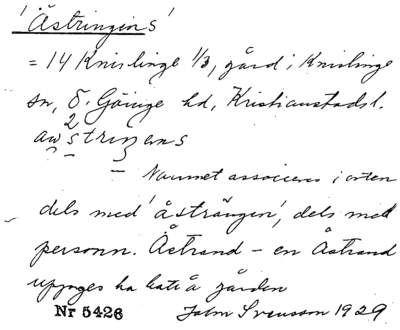 'Ästringens'
= 14 Knislinge 1/3, gård i Knislinge
sn, Ö. Göinge hd, Kristianstads l.
Namnet associeras i orten
dels med 'åsträngen', dels med
personn. Åstrand – en Åstrand
uppges ha hatt gården
Nr 5426 John Svensson 1929